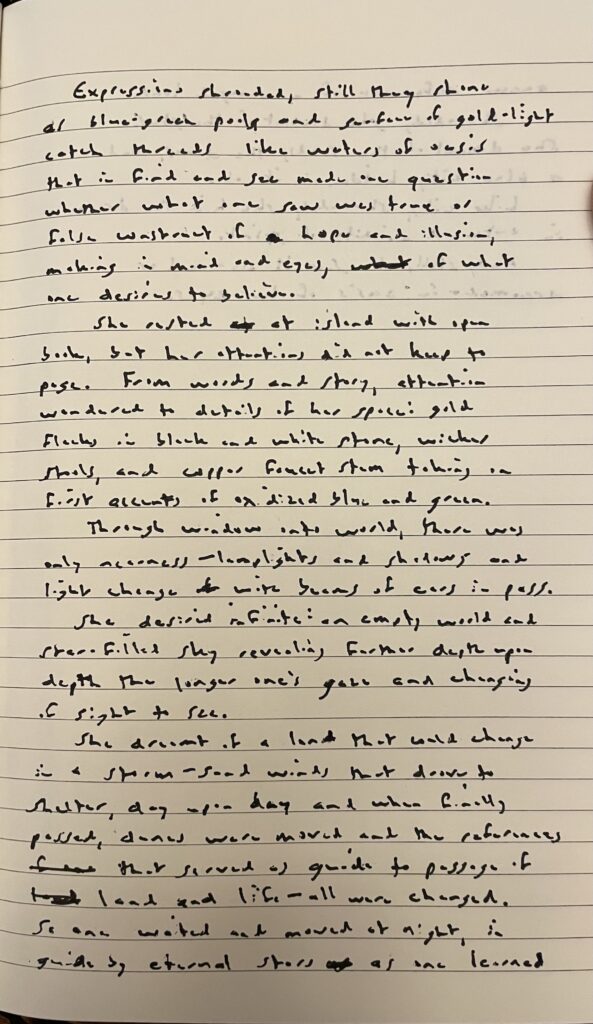 Expressions shrouded, still they shone
as blue-green pools and surface of gold-light
catch threads like waters of oasis
that in find and see made one question
whether what one saw was true or
false construct of hope and illusion,
making in mind and eyes, of what
one desires to believe.
She rested at island with open
book, but her attentions did not keep to
page. From words and story, attention
wandered to details of her space: gold
flecks in black and white stone, wicker
stools, and copper faucet stem taking on
first accents of oxidized blue and green.
Through window onto world, there was
only nearness - lamplights and shadows and
light change with beams of cars in pass.
She desired infinite: an empty world and
star-filled sky revealing further depth upon
depth the longer one's gaze and changing
of sight to see.
She dreamt of a land that would change
in a storm - sand winds that drove to
shelter, day upon day and when finally
passed, dunes were moved and the references
that served as guide to passage of
land and life - all were changed.
So one waited and moved at night, in
guide by eternal stars as one learned